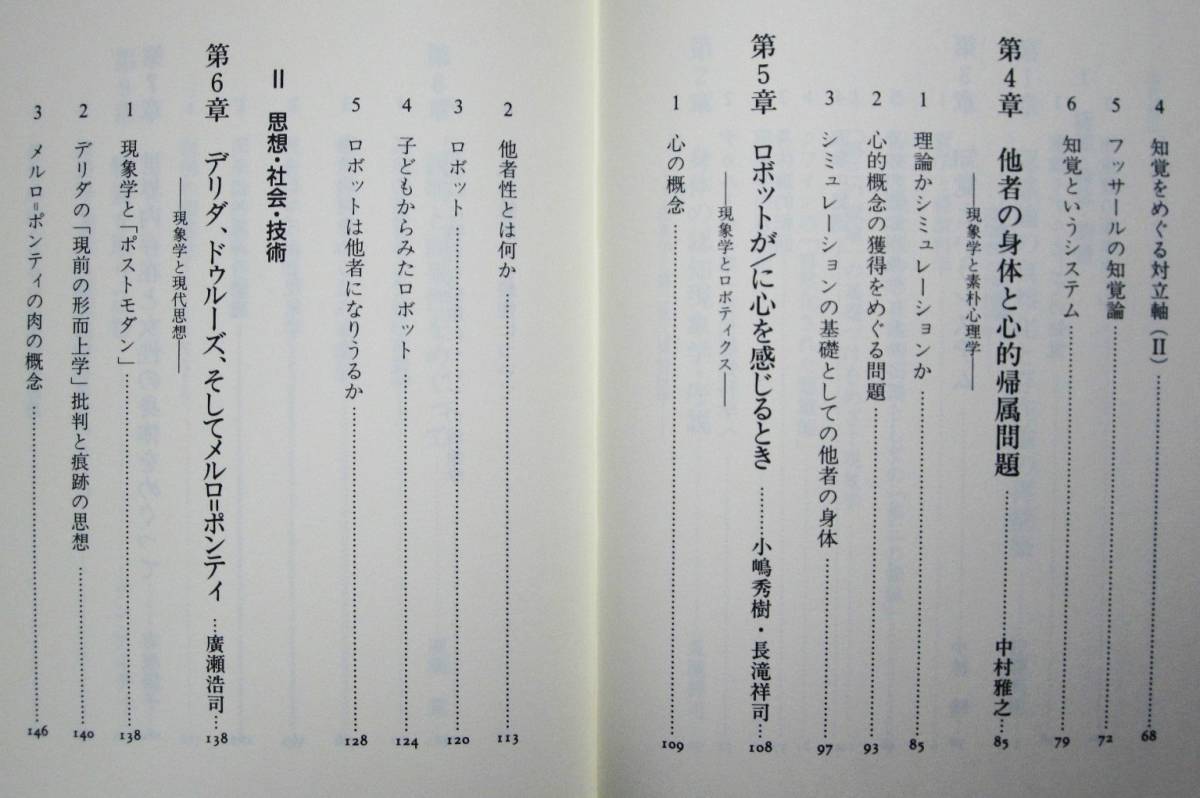 4 知覚をめぐる対立軸（Ⅱ）……68
5 フッサールの知覚論……72
6 知覚というシステム……79
第4章 他者の身体と心的帰属問題……中村雅之……85
——現象学と素朴心理学——
1 理論かシミュレーションか……85
2 心的概念の獲得をめぐる問題……93
3 シミュレーションの基礎としての他者の身体……97
第5章 ロボットが/に心を感じるとき……小嶋秀樹・長滝祥司……108
——現象学とロボティクス——
1 心の概念……109
2 他者性とは何か……113
3 ロボット……120
4 子どもからみたロボット……124
5 ロボットは他者になりうるか……128
Ⅱ 思想・社会・技術
第6章 デリダ、ドゥルーズ、そしてメルロ＝ポンティ……廣瀬浩司……138
——現象学と現代思想——
1 現象学と「ポストモダン」……138
2 デリダの「現前の形而上学」批判と痕跡の思想……140
3 メルロ＝ポンティの肉の概念……146